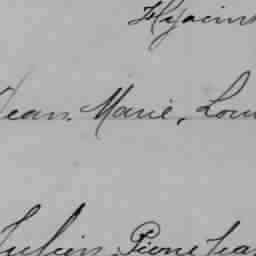 Hyacin
Jean, Marie, Lou
Julien Pierre Jea